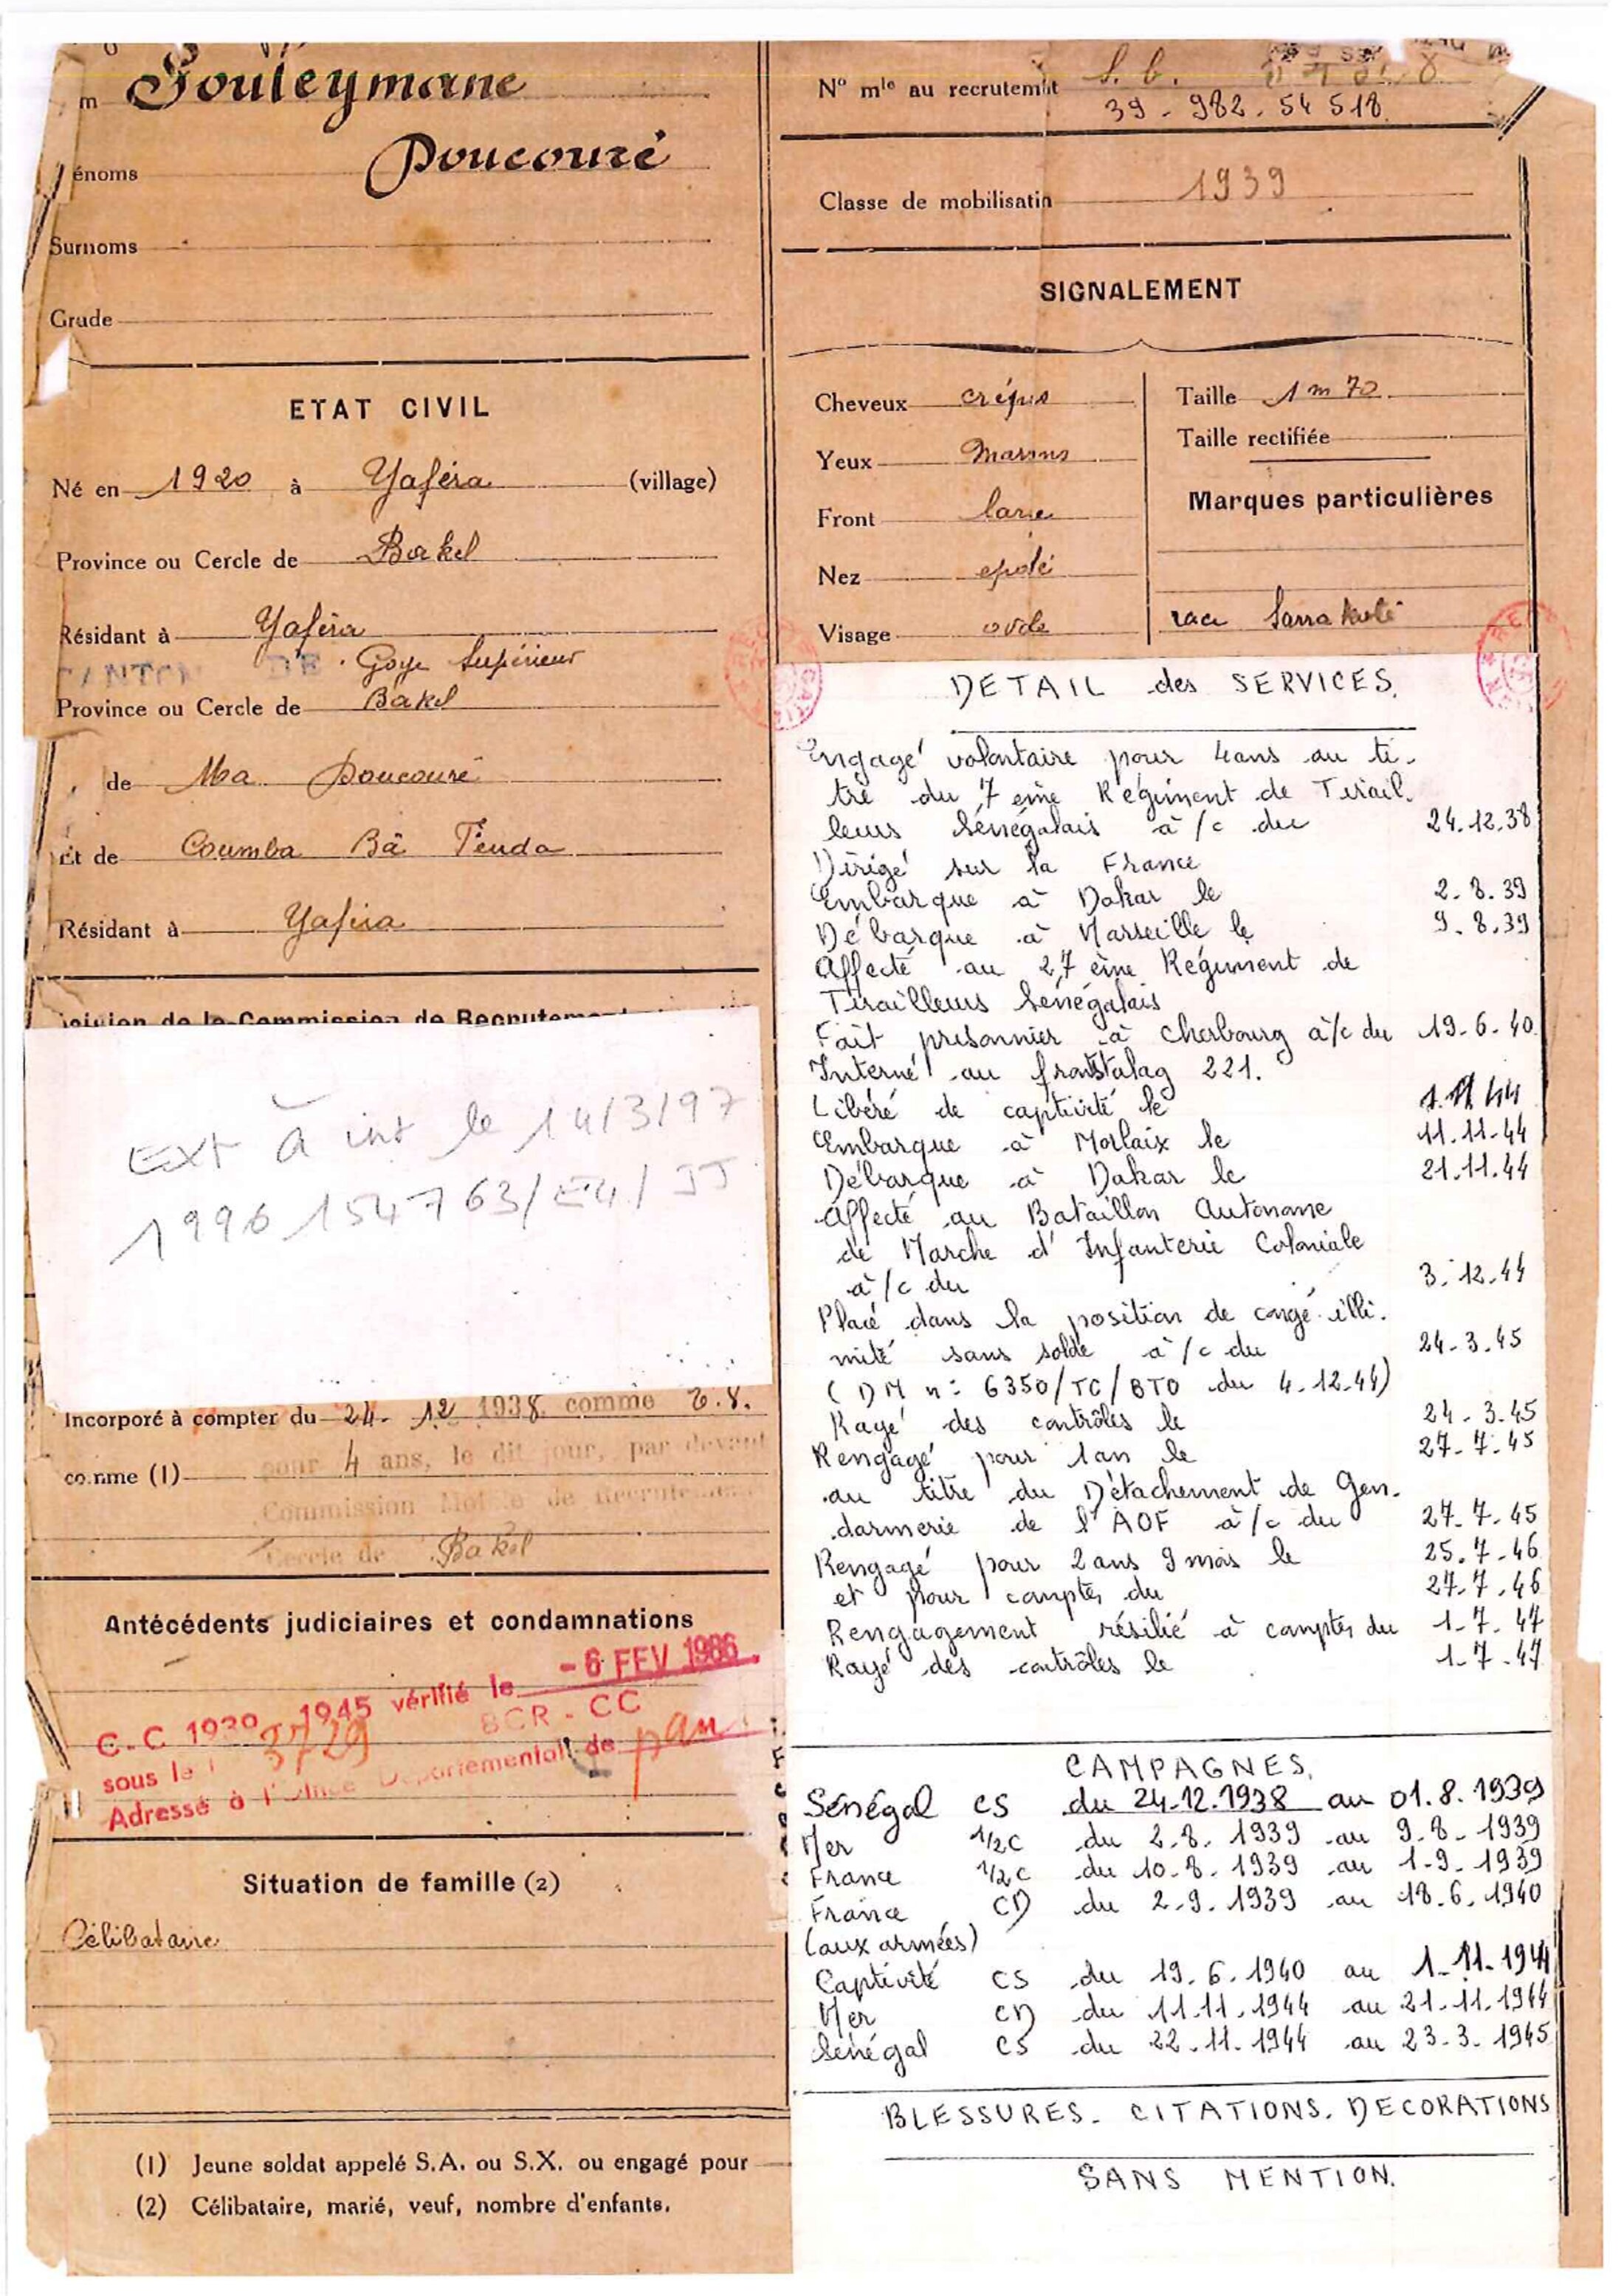 Souleymane
énoms Doucouré
Surnoms
Grade
ETAT CIVIL
Né en 1920 à Yaféra (village)
Province ou Cercle de Bakel
Résidant à Yaféra
CANTON DE Goye Supérieur
Province ou Cercle de Bakel
de Mba Doucouré
Et de Coumba Bâ Tenda
Résidant à Yaféra
de la Commission de Recrutement
Ext à int le 14/3/97
1996 154763/E4/JJ
Incorporé à compter du 24. 12 1938 comme
comme (1) pour 4 ans, le dit jour, par devant
Commission Mobile de Recrutement
Cercle de Bakel
Antécédents judiciaires et condamnations
- 6 FEV 1986
C.C 1939 1945 vérifié le
BCR - CC
sous le 3729
Adresse à l'Office Départemental de pau
Situation de famille (2)
Célibataire
(1) Jeune soldat appelé S.A. ou S.X. ou engagé pour
(2) Célibataire, marié, veuf, nombre d'enfants.
N° mle au recrutemnt
39 - 982 - 54 518
Classe de mobilisatin 1939
SIGNALEMENT
Cheveux crépus
Yeux Marrons
Front large
Nez epaté
Visage ovale
Taille 1 m 70
Taille rectifiée
Marques particulières
race Sarrakolé
DETAIL des SERVICES.
Engagé volontaire pour 4 ans au ti-
tre du 7 eme Régiment de Tirail.
leurs Sénégalais à/c du 24.12.38
Dirigé sur la France
Embarque à Dakar le 2.8.39
Débarque à Marseille le 9.8.39
Affecté au 27 ème Régiment de
Tirailleurs Sénégalais
Fait prisonnier à Cherbourg à/c du 19-6-40
Interné au frontstalag 221.
Libéré de captivité le 1.11 44
Embarque à Morlaix le 11.11-44
Débarque à Dakar le 21.11.44
Affecté au Bataillon Autonome
de Marche d'Infanterie Coloniale
à/c du 3-12.44
Placé dans la position de congé illi-
mité sans solde à/c du 24-3.45
(DM n: 6350/TC/BTO du 4.12.44)
Rayé des contrôles le 24.3.45
Rengagé pour 1an le 27-7-45
au titre du Détachement de Gen-
darmerie de l'AOF à/c du 27-7.45
Rengagé pour 2ans 9 mois le 25.7.46
et pour compter du 27.7.46
Rengagement résilié à compter du 1-7.47
Rayé des contrôles le 1-7.47
CAMPAGNES.
Sénégal CS du 24-12.1938 au 01.8.1939
Mer 1/2C du 2.8.1939 au 9.8.1939
France 1/2C du 10.8.1939 au 1-9.1939
France CD du 2.9.1939 au 18.6.1940
(aux armées)
Captivité CS du 19.6.1940 au 1-11-1944
Mer CD du 11.11.1944 au 21.11.1944
Sénégal CS du 22.11.1944 au 23-3.1945
BLESSURES. CITATIONS. DECORATIONS
SANS MENTION.